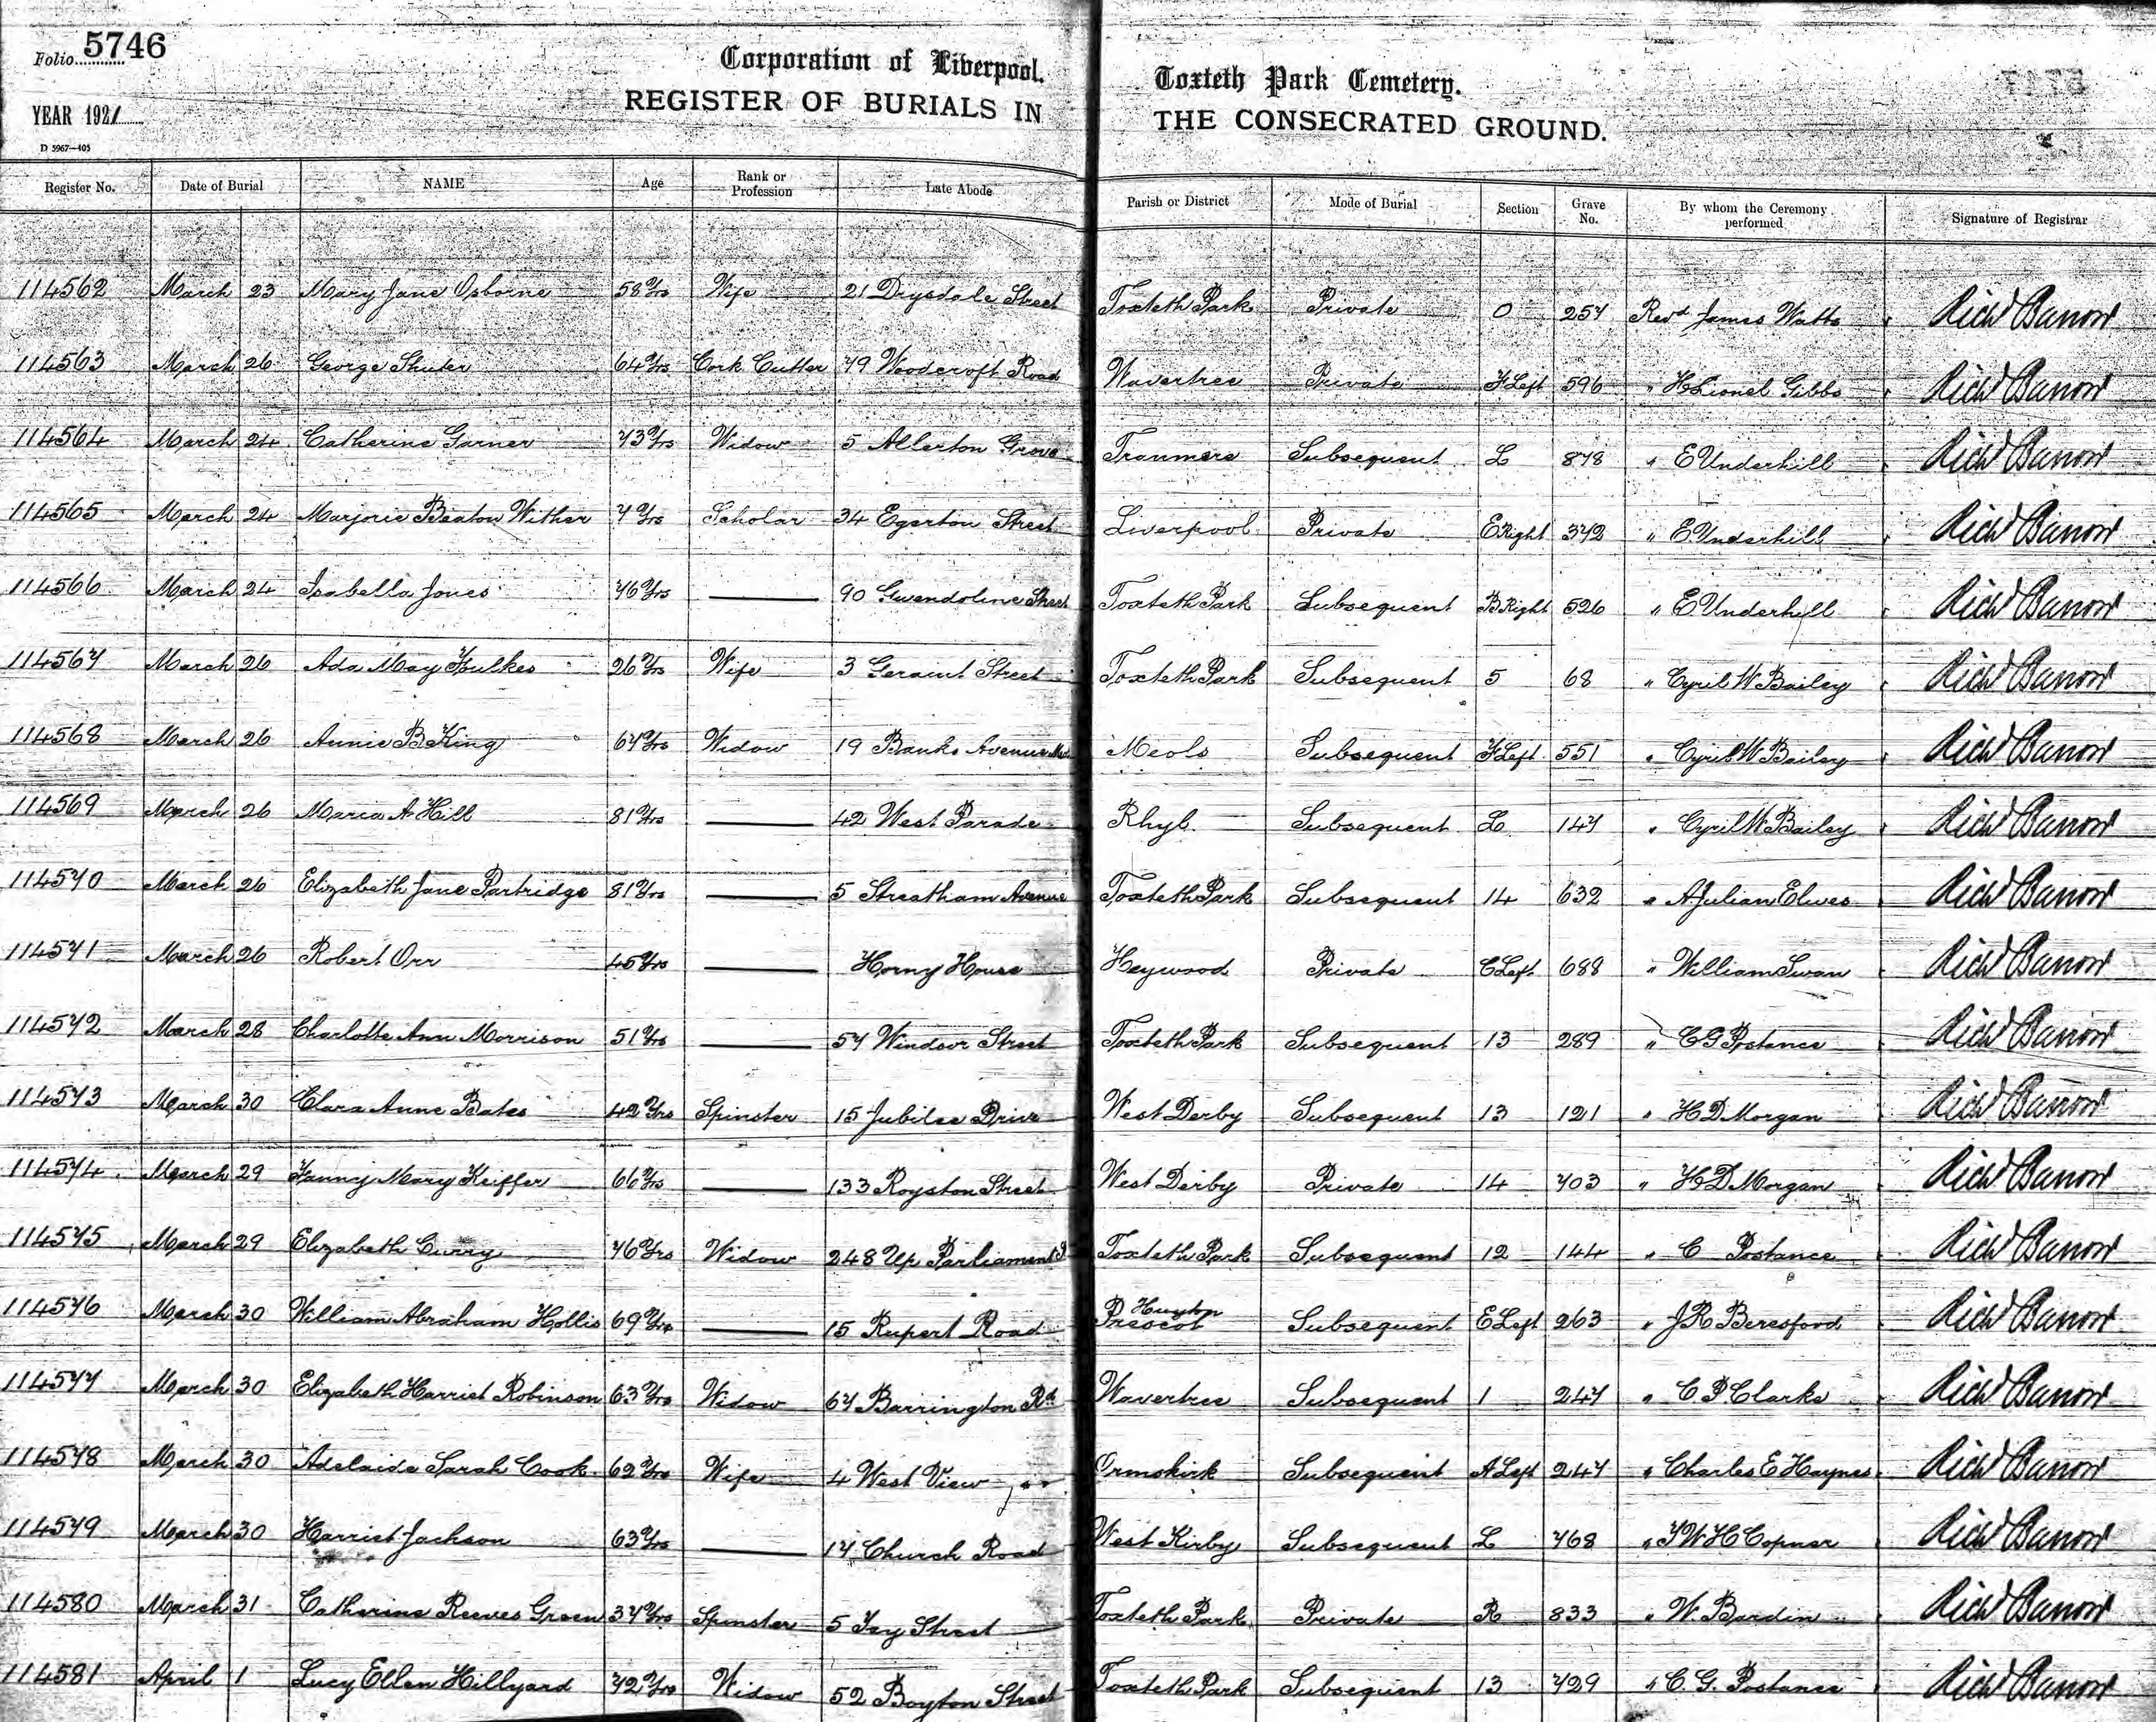 Folio 5746
Corporation of Liverpool. Toxteth Park Cemetery.
YEAR 1921 REGISTER OF BURIALS IN THE CONSECRATED GROUND.
D 5967—405
Register No. Date of Burial NAME Age Rank or Profession Late Abode Parish or District Mode of Burial Section Grave No. By whom the Ceremony performed Signature of Registrar
114562 March 23 Mary Jane Osborne 58 Yrs Wife 21 Drysdale Street Toxteth Park Private O 257 Revd James Watts Richd Barrow
114563 March 26 George Shuter 64 Yrs Cork Cutter 79 Woodcroft Road Wavertree Private F Left 596 " H Lionel Gibbs Richd Barrow
114564 March 24 Catherine Garner 73 Yrs Widow 5 Allerton Grove Tranmere Subsequent L 878 " E Underhill Richd Barrow
114565 March 24 Marjorie Beaton Wither 7 Yrs Scholar 34 Egerton Street Liverpool Private E Right 372 " E Underhill Richd Barrow
114566 March 24 Isabella Jones 76 Yrs — 90 Gwendoline Street Toxteth Park Subsequent B Right 526 " E Underhill Richd Barrow
114567 March 26 Ada May Foulkes 26 Yrs Wife 3 Geraint Street Toxteth Park Subsequent 5 68 " Cyril W Bailey Richd Barrow
114568 March 26 Annie B King 67 Yrs Widow 19 Banks Avenue Meols Subsequent F Left 551 " Cyril W Bailey Richd Barrow
114569 March 26 Maria A Hill 81 Yrs — 42 West Parade Rhyl Subsequent L 147 " Cyril W Bailey Richd Barrow
114570 March 26 Elizabeth Jane Partridge 81 Yrs — 5 Streatham Avenue Toxteth Park Subsequent 14 632 " A Julian Elwes Richd Barrow
114571 March 26 Robert Orr 45 Yrs — Horny House Heywood Private C Left 688 " William Swan Richd Barrow
114572 March 28 Charlotte Ann Morrison 51 Yrs — 57 Windsor Street Toxteth Park Subsequent 13 289 " C G Postance Richd Barrow
114573 March 30 Clara Anne Bates 42 Yrs Spinster 15 Jubilee Drive West Derby Subsequent 13 121 " H D Morgan Richd Barrow
114574 March 29 Fanny Mary Keiffer 66 Yrs — 133 Royston Street West Derby Private 14 703 " H D Morgan Richd Barrow
114575 March 29 Elizabeth Curry 76 Yrs Widow 248 Up. Parliament S Toxteth Park Subsequent 12 144 " C Postance Richd Barrow
114576 March 30 William Abraham Hollis 69 Yrs — 15 Rupert Road Huyton Prescot Subsequent E Left 263 " J R Beresford Richd Barrow
114577 March 30 Elizabeth Harriet Robinson 63 Yrs Widow 67 Barrington Rd Wavertree Subsequent 1 247 " C. P. Clarke Richd Barrow
114578 March 30 Adelaide Sarah Cook 62 Yrs Wife 4 West View Ormskirk Subsequent A Left 247 " Charles E Haynes Richd Barrow
114579 March 30 Harriet Jackson 63 Yrs — 17 Church Road West Kirby Subsequent L 768 " T W H Copner Richd Barrow
114580 March 31 Catherine Reeves Green 37 Yrs Spinster 5 Tay Street Toxteth Park Private R 833 " W. Bardin Richd Barrow
114581 April 1 Lucy Ellen Hillyard 72 Yrs Widow 52 Boyton Street Toxteth Park Subsequent 13 729 " C. G. Postance Richd Barrow